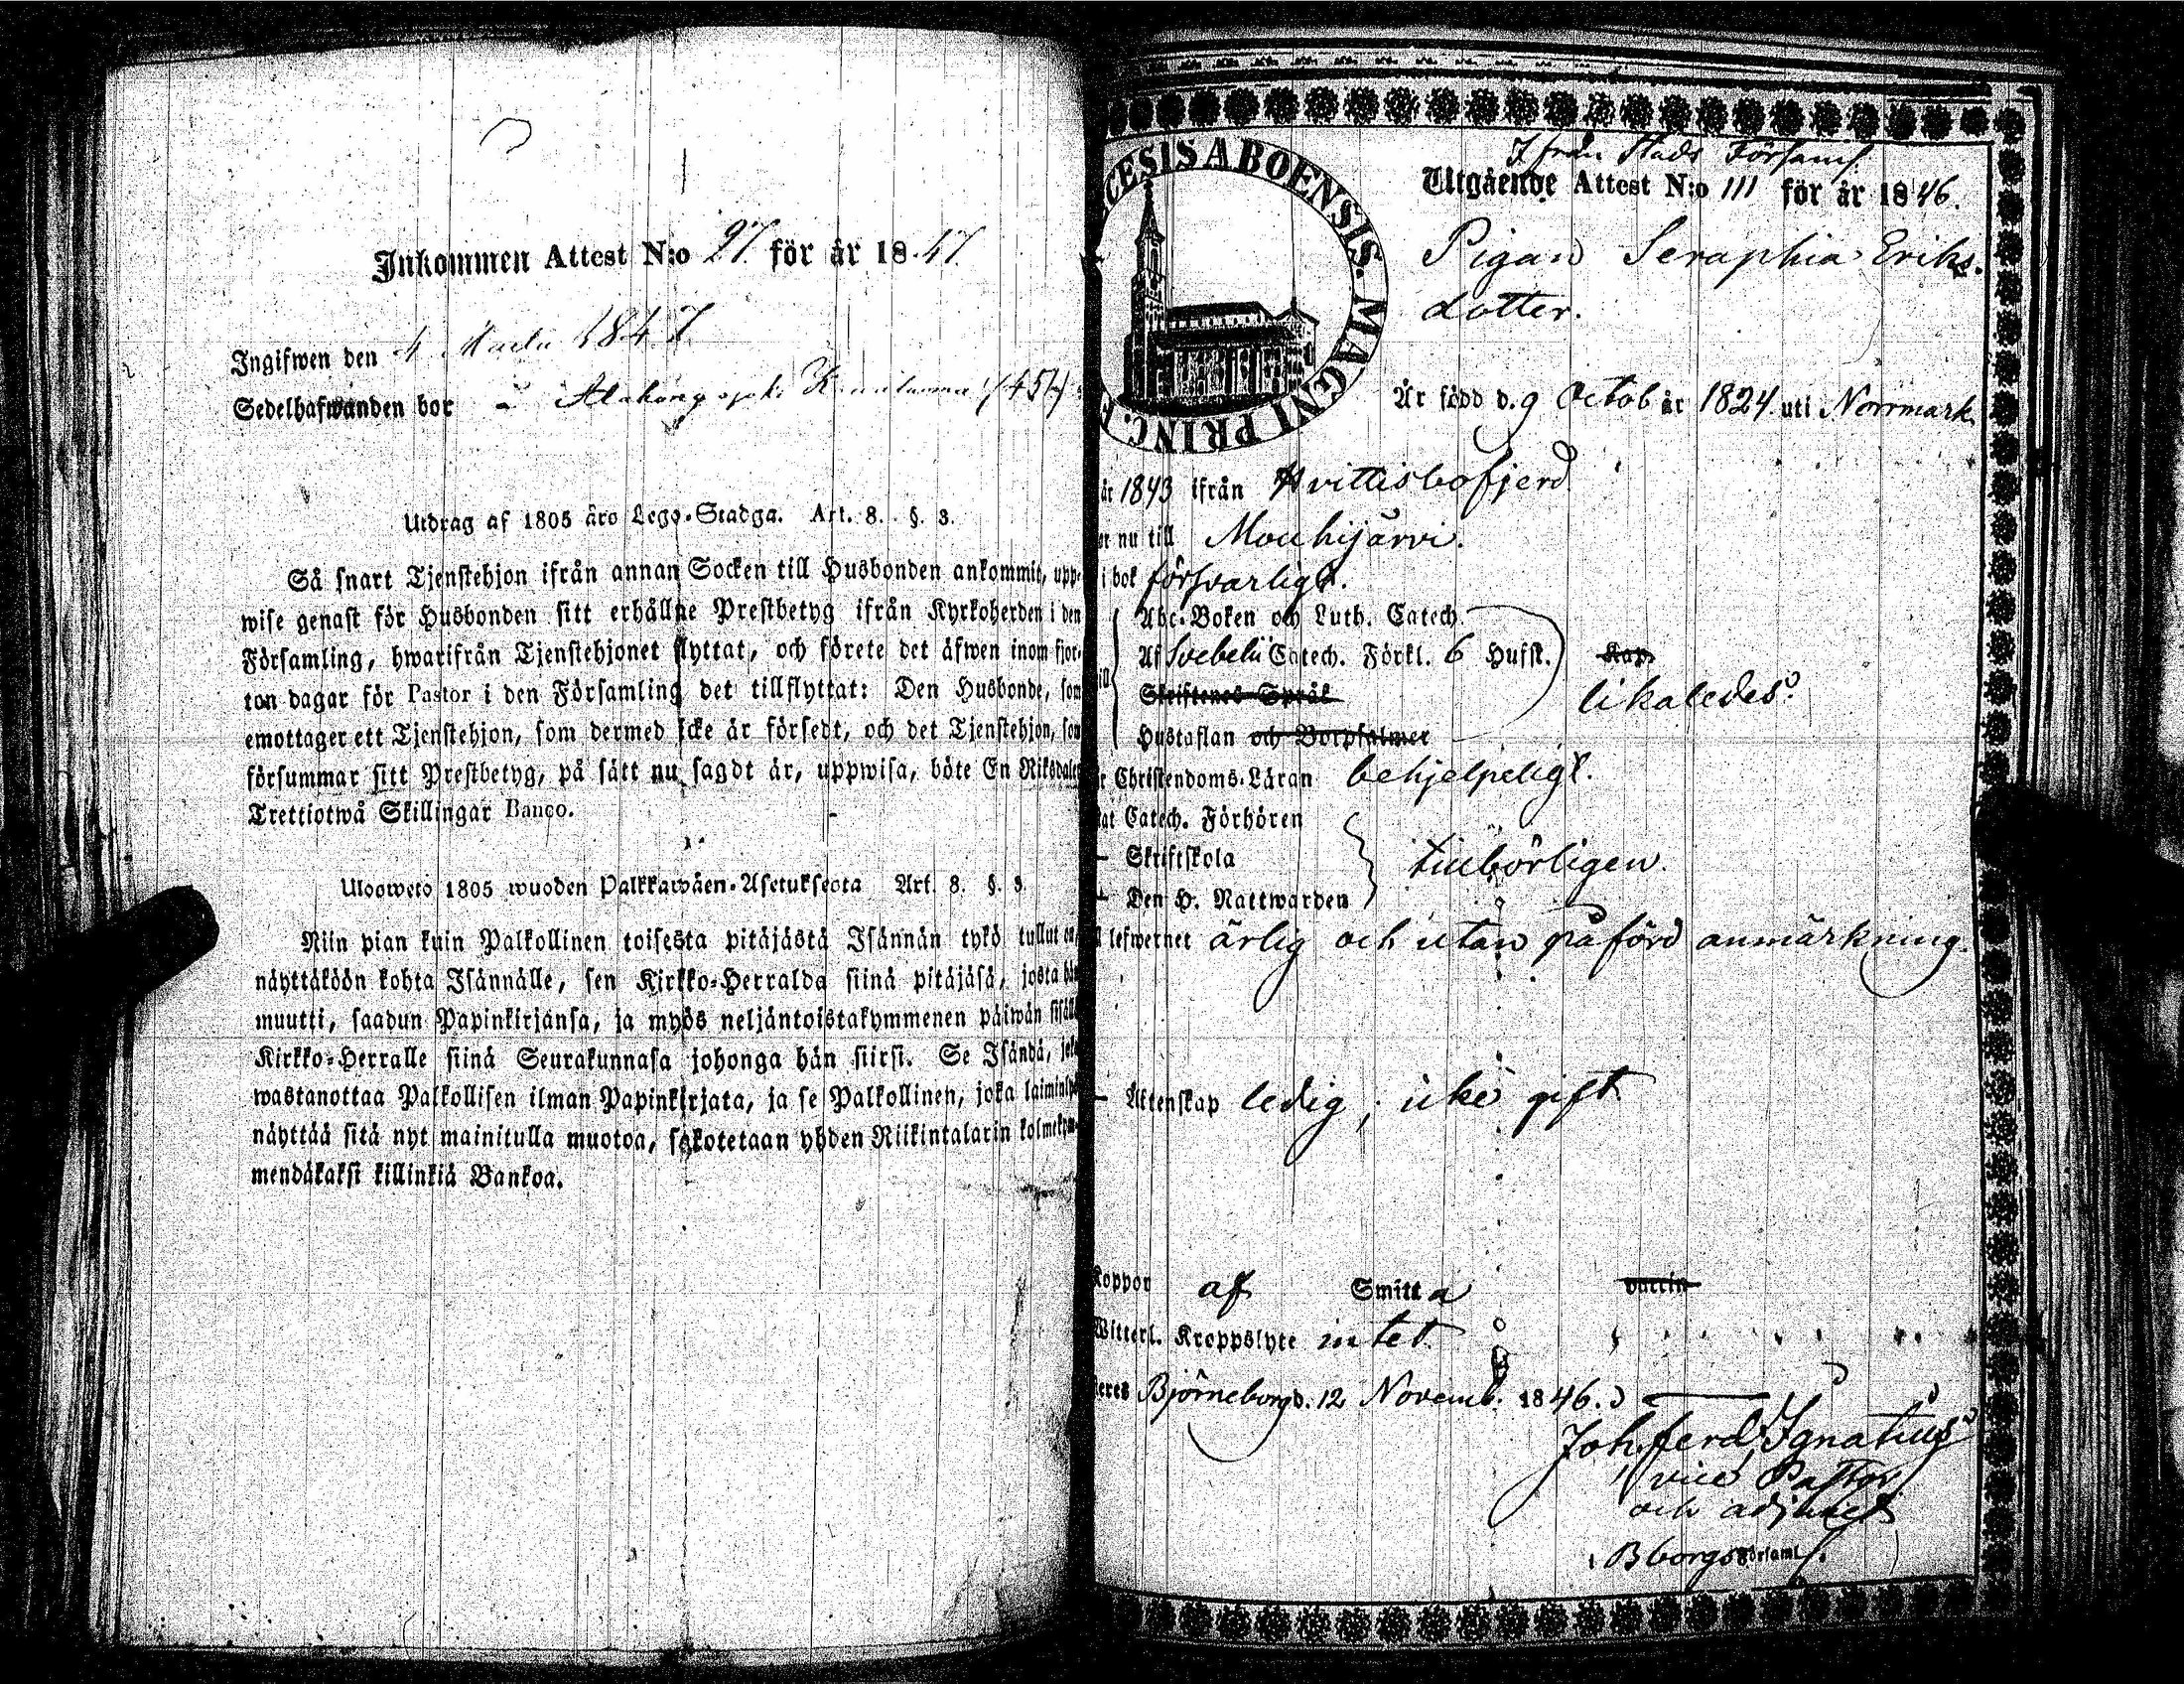 Inkommen Attest N:o 27. för år 1847.
Ingifwen den 4 1847.
Sedelhafwanden bor
Utdrag af 1805 års Lego-Stadga. Art. 8. §. 3.
Så snart Tjenstehjon ifrån annan Socken till Husbonden ankommit, upp-
wise genast för Husbonden sitt erhållne Prestbetyg ifrån Kyrkoherden i den
Församling, hwarifrån Tjenstehjonet flyttat, och förete det äfwen inom fjor-
ton dagar för Pastor i den Församling det tillflyttat: Den Husbonde, som
emottager ett Tjenstehjon, som dermed icke är försedt, och det Tjenstehjon, som
försummar sitt Prestbetyg, på sätt nu sagdt är, uppwisa, böte En Riksdaler
Trettiotwå Skillingar Banco.
Ulosweto 1805 wuoden Palkkawäen-Asetuksesta Art. 8. §. 3.
Niin pian kuin Palkollinen toisesta pitäjästä Isännän tykö tullut on,
näyttäköön kohta Isännälle, sen Kirkko-Herralda siinä pitäjäsä, josta hän
muutti, saadun Papinkirjansa, ja myös neljäntoistakymmenen päiwän sisällä
Kirkko-Herralle siinä Seurakunnasa johonga hän siirsi. Se Isändä, joka
wastanottaa Palkollisen ilman Papinkirjata, ja se Palkollinen, joka laiminlyö
näyttää sitä nyt mainitulla muotoa, sakotetaan yhden Riikintalarin kolmekym-
mendäkaksi killinkiä Bankoa.
CESIS ABOENSIS. MAGNI PRINC. F
Ifrån Stads Församl.
Utgående Attest N:o 111 för år 1846.
Pigan Seraphia Eriks-
dotter.
Är född d. 9 Octob år 1824. uti Norrmark
år 1843 ifrån Hvittisbofjerd
nu till Mouhijärvi.
i bok försvarligt.
Abc-Boken och Luth. Catech.
Af Svebelii Catech. Förkl. 6 Hufst.
Skriftenes Språk
likaledes.
Hustaflan och Botpsalmer
Christendoms-Läran behjelpeligt.
Catech. Förhören
Skriftskola
tillbörligen.
Den H. Nattwarden
lefwernet ärlig och utan påförd anmärkning.
Äktenskap ledig, icke gift
Koppor af Smitta
Witterl. Kroppslyte intet
Björneborg d. 12 Novemb. 1846.
Joh. Ferd. Ignatius
vice Pastor
och adjunct
i Bborgs Församl.